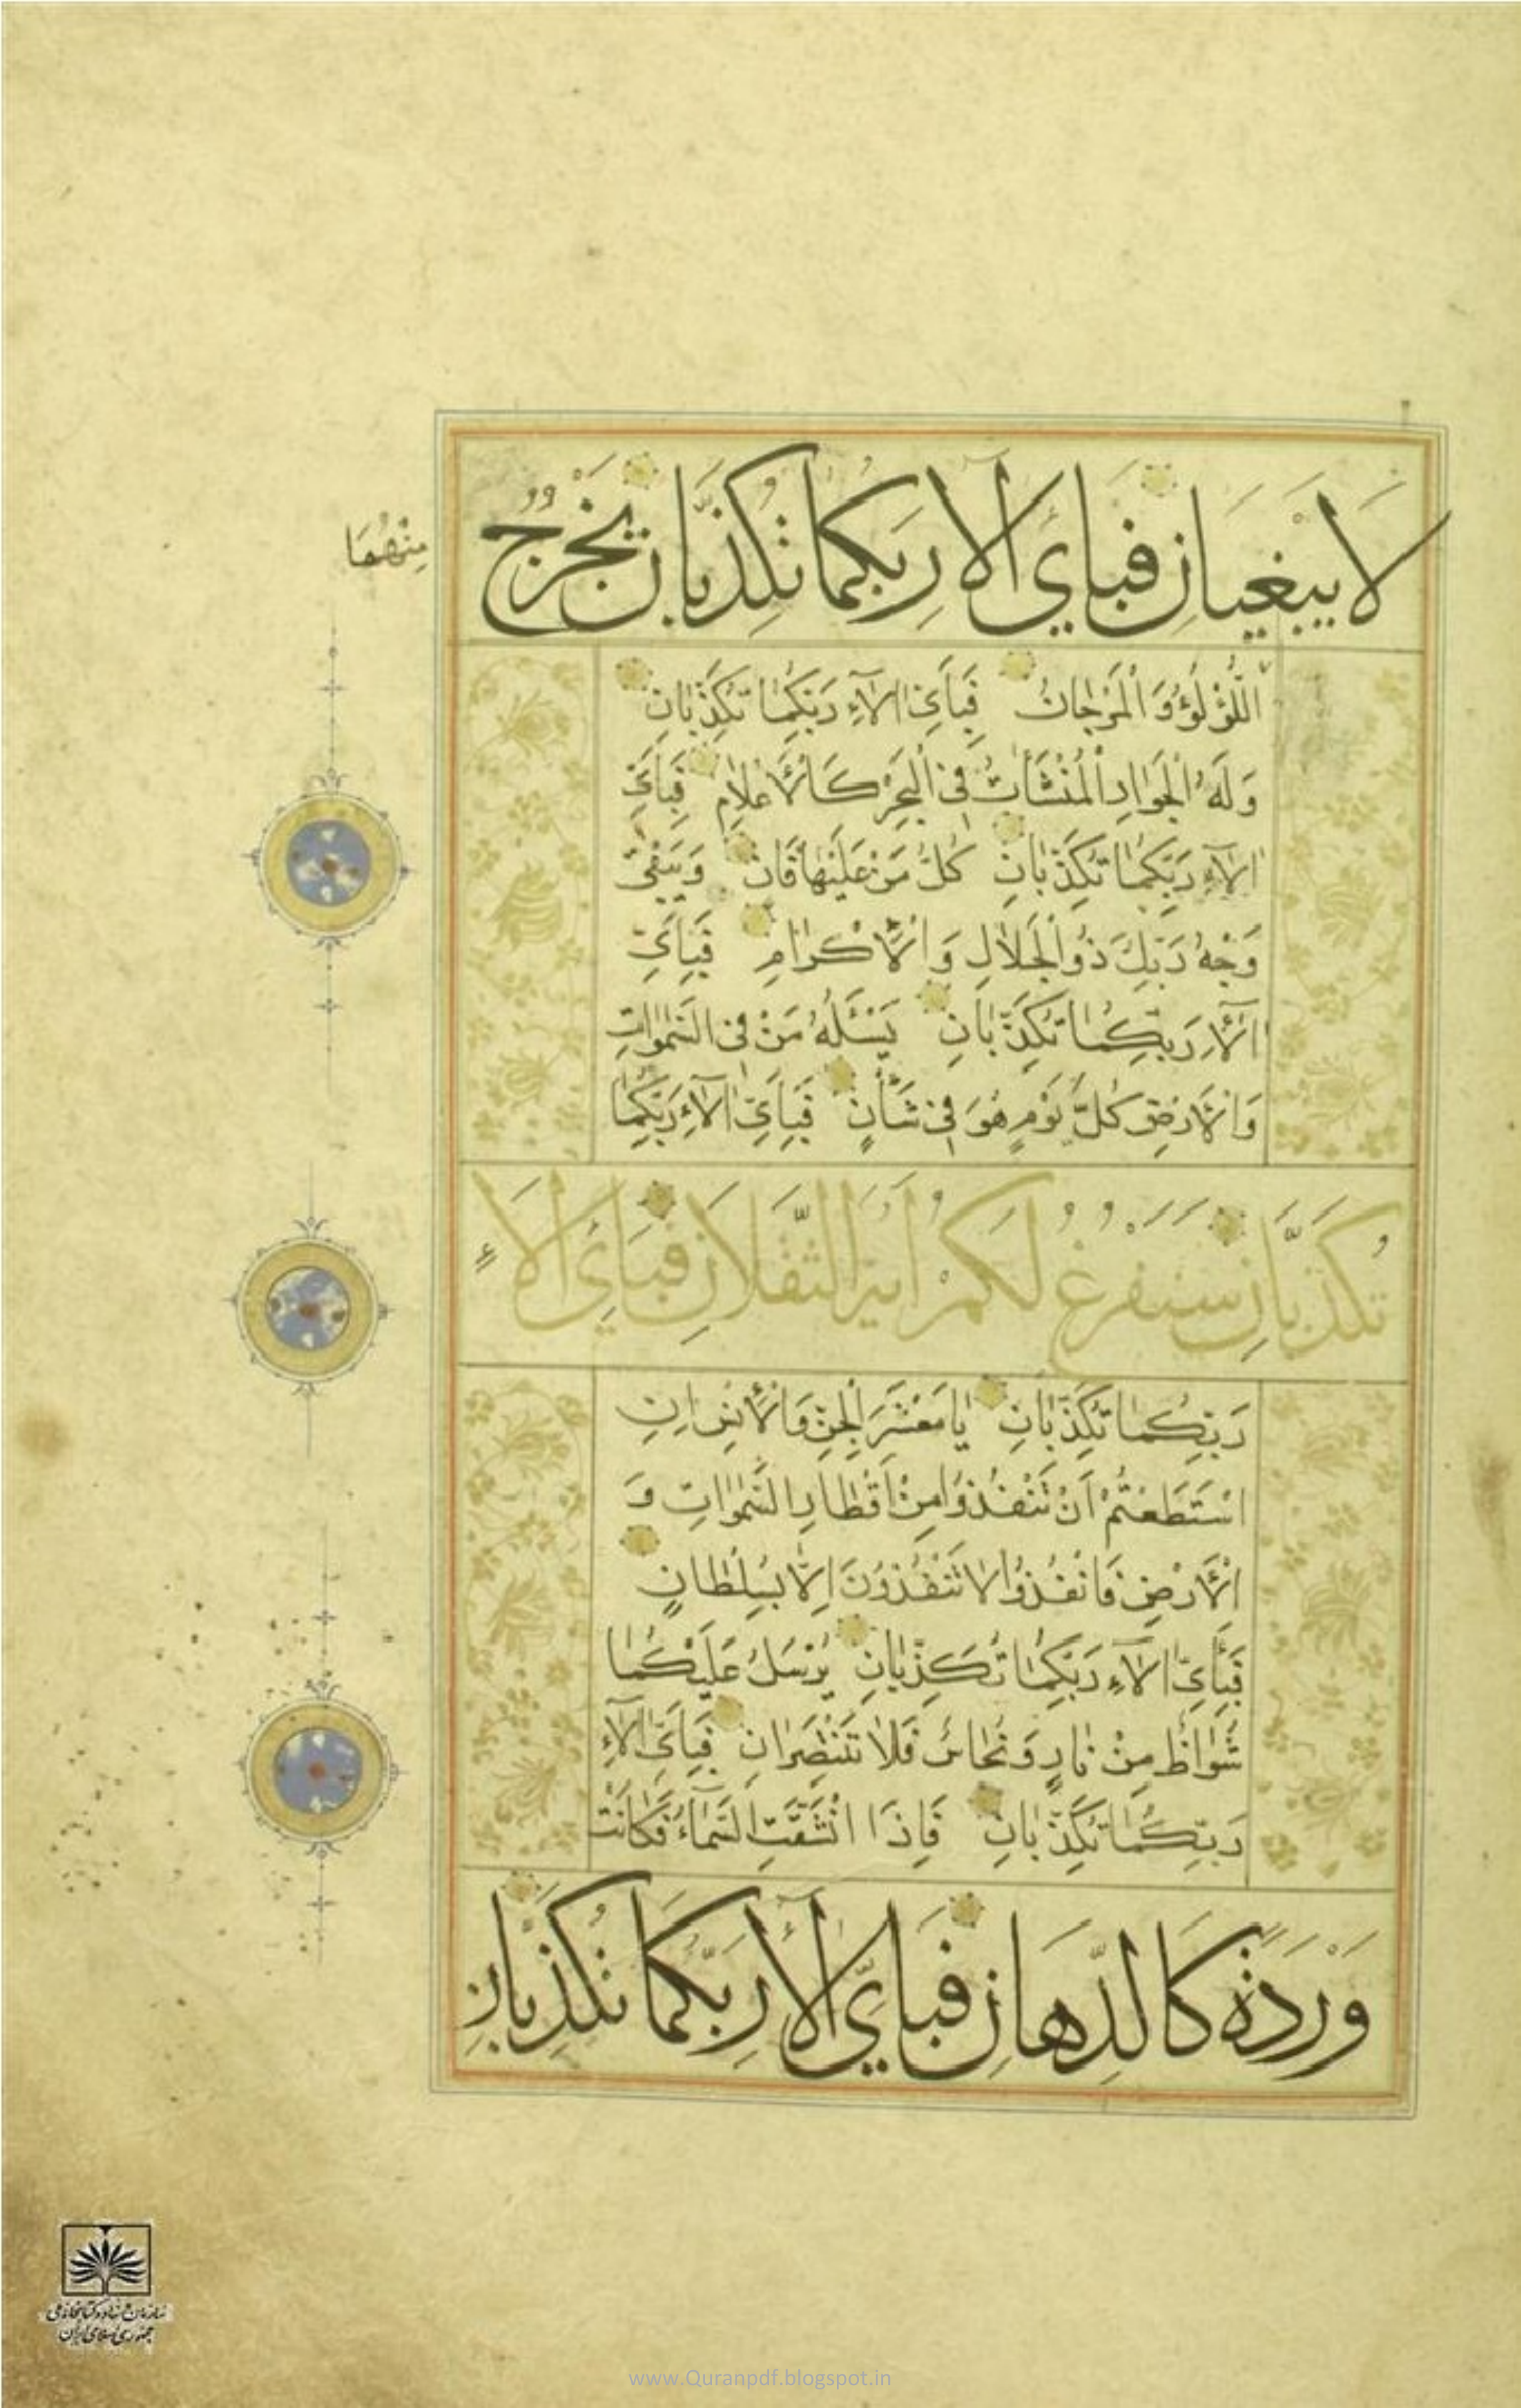 لَا يَبْغِيَانِ فَبِأَيِّ آلَاءِ رَبِّكُمَا تُكَذِّبَانِ يَخْرُجُ
مِنْهُمَا
اللُّؤْلُؤُ وَالْمَرْجَانُ فَبِأَيِّ آلَاءِ رَبِّكُمَا تُكَذِّبَانِ
وَلَهُ الْجَوَارِ الْمُنْشَآتُ فِي الْبَحْرِ كَالْأَعْلَامِ فَبِأَيِّ
آلَاءِ رَبِّكُمَا تُكَذِّبَانِ كُلُّ مَنْ عَلَيْهَا فَانٍ وَيَبْقَى
وَجْهُ رَبِّكَ ذُو الْجَلَالِ وَالْإِكْرَامِ فَبِأَيِّ
آلَاءِ رَبِّكُمَا تُكَذِّبَانِ يَسْئَلُهُ مَنْ فِي السَّمٰوَاتِ
وَالْأَرْضِ كُلَّ يَوْمٍ هُوَ فِي شَأْنٍ فَبِأَيِّ آلَاءِ رَبِّكُمَا
تُكَذِّبَانِ سَنَفْرُغُ لَكُمْ أَيُّهَ الثَّقَلَانِ فَبِأَيِّ آلَاءِ
رَبِّكُمَا تُكَذِّبَانِ يَا مَعْشَرَ الْجِنِّ وَالْإِنْسِ إِنِ
اسْتَطَعْتُمْ أَنْ تَنْفُذُوا مِنْ أَقْطَارِ السَّمٰوَاتِ وَ
الْأَرْضِ فَانْفُذُوا لَا تَنْفُذُونَ إِلَّا بِسُلْطَانٍ
فَبِأَيِّ آلَاءِ رَبِّكُمَا تُكَذِّبَانِ يُرْسَلُ عَلَيْكُمَا
شُوَاظٌ مِنْ نَارٍ وَنُحَاسٌ فَلَا تَنْتَصِرَانِ فَبِأَيِّ آلَاءِ
رَبِّكُمَا تُكَذِّبَانِ فَإِذَا انْشَقَّتِ السَّمَاءُ فَكَانَتْ
وَرْدَةً كَالدِّهَانِ فَبِأَيِّ آلَاءِ رَبِّكُمَا تُكَذِّبَانِ
سازمان اسناد و کتابخانه ملی
جمهوری اسلامی ایران
www.Quranpdf.blogspot.in